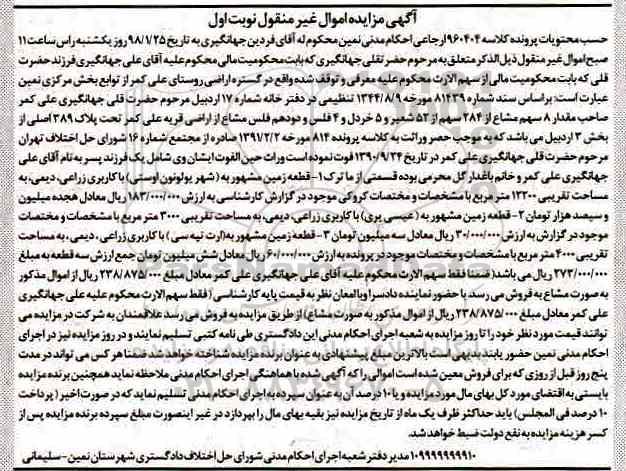 آگهی مزایده اموال غیر منقول نوبت اول
حسب محتویات پرونده کلاسه ۹۶۰۴۰۴ ارجاعی احکام مدنی نمین محکوم له آقای فردین جهانگیری به تاریخ ۹۸/۱/۲۵ روز یکشنبه راس ساعت ۱۱
صبح اموال غیر منقول ذیل الذکر متعلق به مرحوم حضرتقلی جهانگیری که بابت محکومیت مالی محکوم علیه آقای علی جهانگیری فرزند حضرت
قلی که بابت محکومیت مالی از سهم الارث محکوم علیه معرفی و توقف شده واقع در گستره اراضی روستای علی کمر از توابع بخش مرکزی نمین
عبارت است: براساس سند شماره ۸۱۴۳۹ مورخه ۱۳۴۴/۸/۹ تنظیمی در دفتر خانه شماره ۱۷ اردبیل مرحوم حضرت قلی جهانگیری علی کمر
صاحب مقدار ۸ سهم مشاع از ۲۸۴ سهم از ۵۲ شعیر و ۵ خردل و ۴ فلس و دودهم فلس مشاع از اراضی قریه علی کمر تحت پلاک ۳۸۹ اصلی از
بخش ۳ اردبیل می باشد که به موجب حصر وراثت به کلاسه پرونده ۸۱۴ مورخه ۱۳۹۱/۲/۲ صادره از مجتمع شماره ۱۶ شورای حل اختلاف تهران
مرحوم حضرت قلی جهانگیری علی کمر در تاریخ ۱۳۹۰/۹/۲۴ فوت نموده است وراث حین الفوت ایشان وی شامل یک فرزند پسر به نام آقای علی
جهانگیری علی کمر و خانم باغدار گل محرمی بوده قسمتی از ما ترک ۱- قطعه زمین مشهور به (شهر یولونون اوستی) با کاربری زراعی، دیمی، به
مساحت تقریبی ۱۲۲۰۰ متر مربع با مشخصات و مختصات کروکی موجود در گزارش کارشناسی به ارزش ۱۸۳/۰۰۰/۰۰۰ ریال معادل هجده میلیون
و سیصد هزار تومان ۲- قطعه زمین مشهور به (عیسی یری) با کاربری زراعی، دیمی، به مساحت تقریبی ۳۰۰۰ متر مربع با مشخصات و مختصات
موجود در گزارش به ارزش ۳۰/۰۰۰/۰۰۰ ریال معادل سه میلیون تومان ۳- قطعه زمین مشهور به (ارت تپه سی) با کاربری زراعی، دیمی، به مساحت
تقریبی ۴۰۰۰ متر مربع با مشخصات و مختصات موجود در پرونده به ارزش ۶۰/۰۰۰/۰۰۰ ریال معادل شش میلیون تومان جمع ارزش سه قطعه به مبلغ
۲۷۳/۰۰۰/۰۰۰ ریال می باشد (ضمنا فقط سهم الارث محکوم علیه آقای علی جهانگیری علی کمر معادل مبلغ ۲۳۸/۸۷۵/۰۰۰ ریال از اموال مذکور
به صورت مشاع به فروش می رسد. با حضور نماینده دادسرا و باامعان نظر به قیمت پایه کارشناسی (فقط سهم الارث محکوم علیه علی جهانگیری
علی کمر معادل مبلغ ۲۳۸/۸۷۵/۰۰۰ ریال از اموال مذکور به صورت مشاع) از طریق مزایده به فروش می رسد علاقمندان به شرکت در مزایده می
توانند قیمت مورد نظر خود را تا روز مزایده به شعبه اجرای احکام مدنی این دادگستری طی نامه کتبی تسلیم نمایند و در روز مزایده نیز در اجرای
احکام مدنی نمین حضور یابند بدیهی است بالاترین مبلغ پیشنهادی به عنوان برنده مزایده شناخته خواهد شد ضمنا هر کس می تواند در مدت
پنج روز قبل از روزی که برای فروش معین شده است اموالی را که آگهی شده با هماهنگی اجرای احکام مدنی ملاحظه نماید همچنین برنده مزایده
بایستی به اقتضای مورد کل بهای مال مورد مزایده و یا ۱۰ درصد آن به عنوان سپرده به اجرای احکام مدنی تسلیم نماید که در صورت اخیر (پرداخت
۱۰ درصد فی المجلس) باید حداکثر ظرف یک ماه از تاریخ مزایده نیز بقیه بهای مال را بپردازد در غیر اینصورت مبلغ سپرده برنده مزایده پس از
کسر هزینه مزایده به نفع دولت ضبط خواهد شد.
۱۰۹۹۹۹۹۹۹۱۰ مدیر دفتر شعبه اجرای احکام مدنی شورای حل اختلاف دادگستری شهرستان نمین- سلیمانی